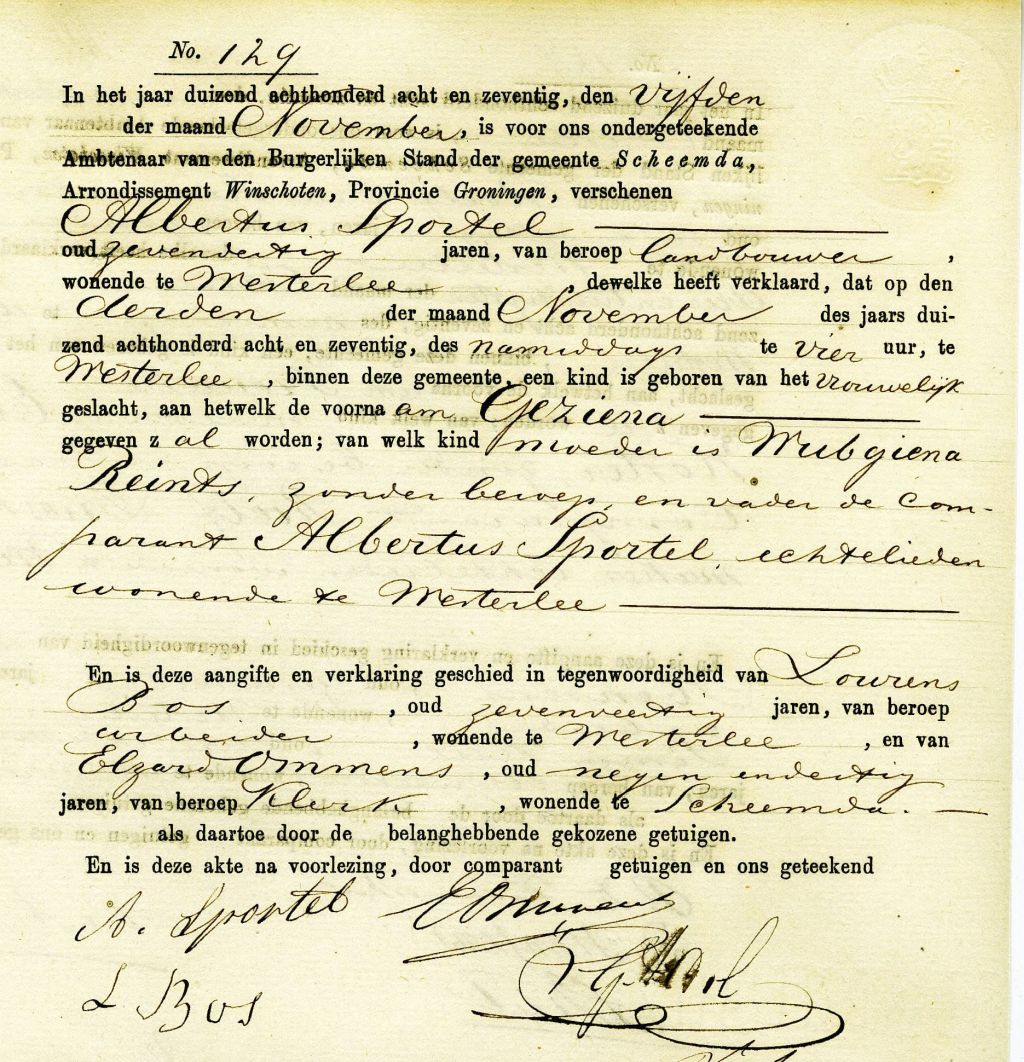 No. 129
In het jaar duizend achthonderd acht en zeventig, den vijfden
der maand November, is voor ons ondergeteekende
Ambtenaar van den Burgerlijken Stand der gemeente Scheemda,
Arrondissement Winschoten, Provincie Groningen, verschenen
Albertus Sportel
oud zevendertig jaren, van beroep landbouwer ,
wonende te Westerlee , dewelke heeft verklaard, dat op den
derden der maand November des jaars dui-
zend achthonderd acht en zeventig, des namiddags te vier uur, te
Westerlee , binnen deze gemeente, een kind is geboren van het vrouwelijk
geslacht, aan hetwelk de voorna am Geziena
gegeven z al worden; van welk kind moeder is Wubgiena
Reints, zonder beroep, en vader de com-
parant Albertus Sportel, echtelieden
wonende te Westerlee
En is deze aangifte en verklaring geschied in tegenwoordigheid van Lourens
Bos , oud zevenveertig jaren, van beroep
arbeider , wonende te Westerlee , en van
Elzard Ommens , oud negen endertig
jaren, van beroep Klerk , wonende te Scheemda.
als daartoe door de belanghebbende gekozene getuigen.
En is deze akte na voorlezing, door comparant getuigen en ons geteekend
A. Sportel EOmmens
L Bos